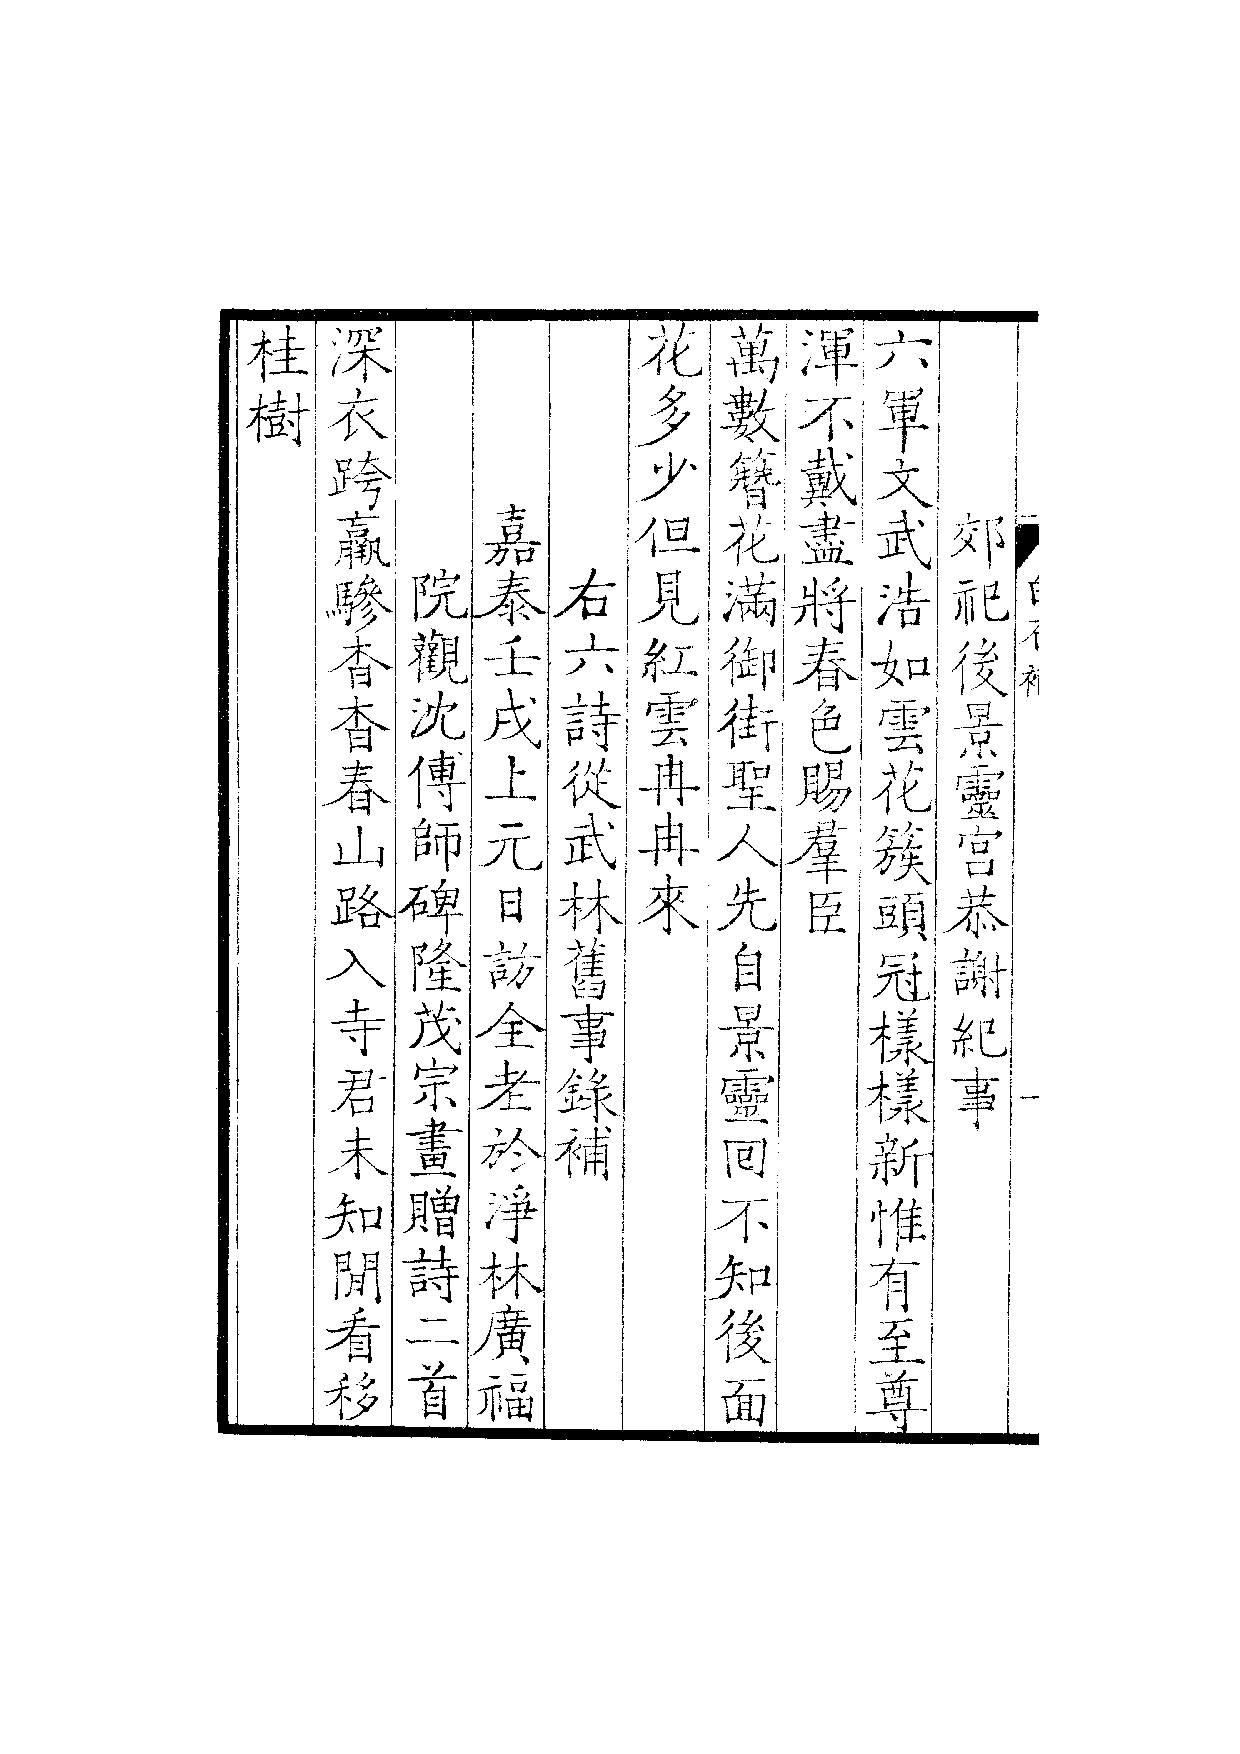 白石補
一
郊祀後景靈宮恭謝紀事
六軍文武浩如雲花簇頭冠樣樣新惟有至尊
渾不戴盡將春色賜羣臣
萬數簪花滿御街聖人先自景靈回不知後面
花多少但見紅雲冉冉來
右六詩從武林舊事錄補
嘉泰壬戌上元日訪全老於淨林廣福
院觀沈傅師碑隆茂宗畫贈詩二首
深衣跨羸驂杳杳春山路入寺君未知閒看移
桂樹